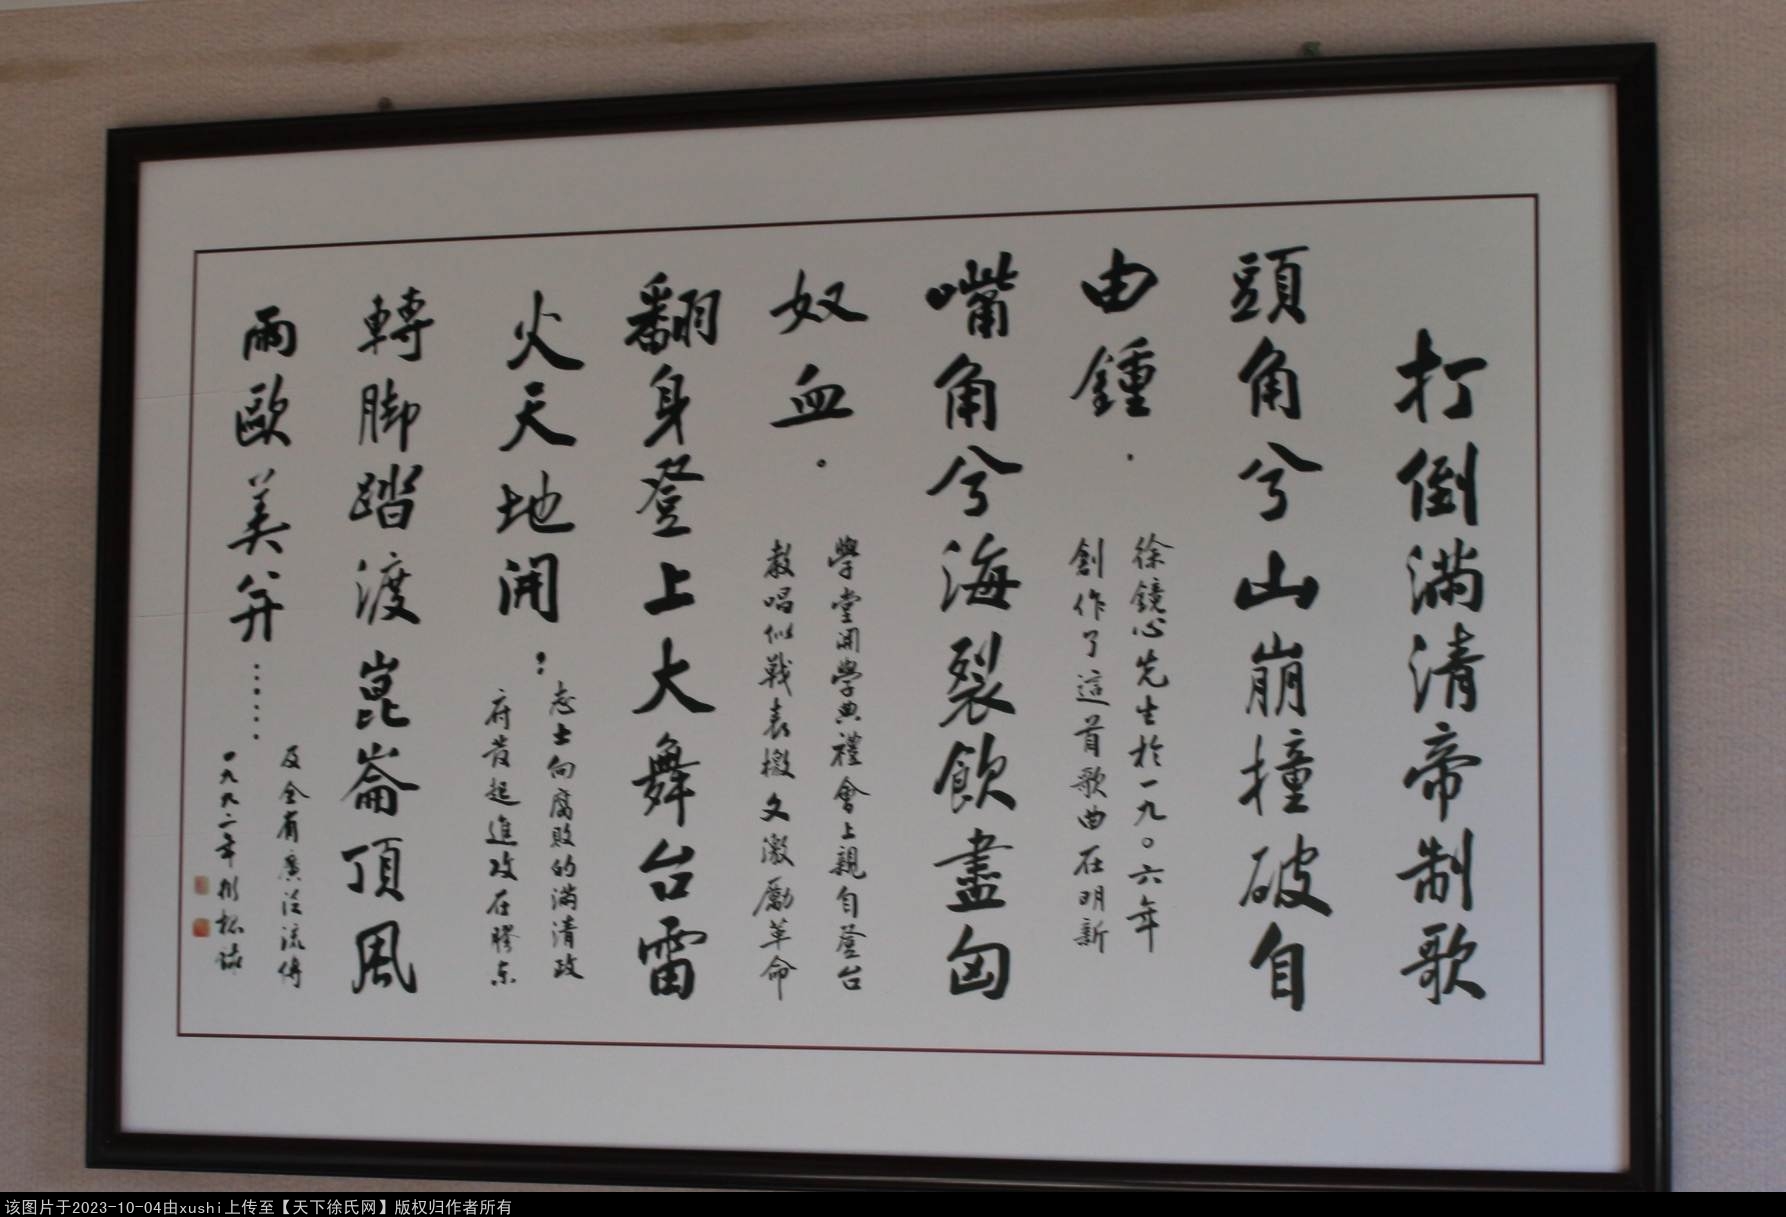 打倒滿清帝制歌
頭角兮山崩撞破自
由鍾．
徐鏡心先生於一九〇六年
創作了這首歌曲在明新
嘴角兮海裂飲盡匈
奴血．
學堂開學典禮會上親自登台
教唱似戰表檄文激勵革命
翻身登上大舞台雷
火天地開：
志士向腐敗的滿清政
府發起進攻在膠东
轉脚踏渡崑崙頂風
雨歐美并……
及全省廣泛流傳
一九九二年
该图片于2023-10-04由xushi上传至【天下徐氏网】版权归作者所有